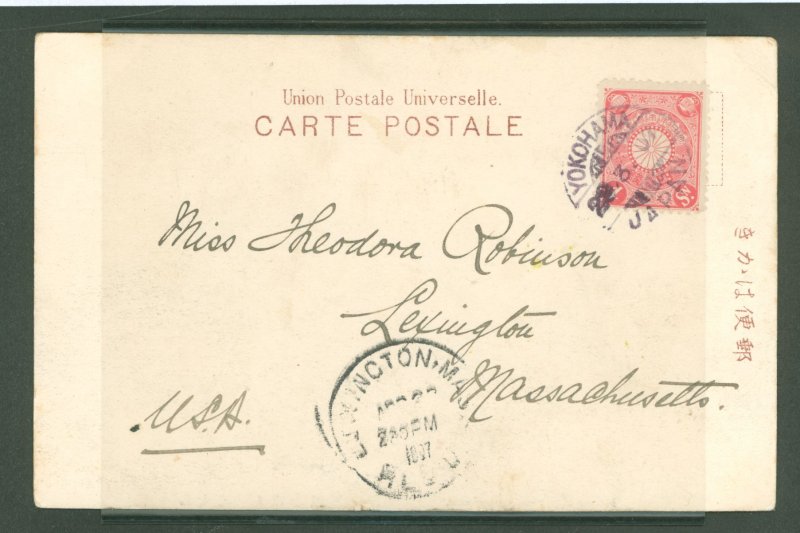 Union Postale Universelle.
CARTE POSTALE
YOKOHAMA
JAPAN
Miss Theodora Robinson
Lexington
Massachusetts.
U.S.A.
LEXINGTON, MA
PM
1907
きかは便郵